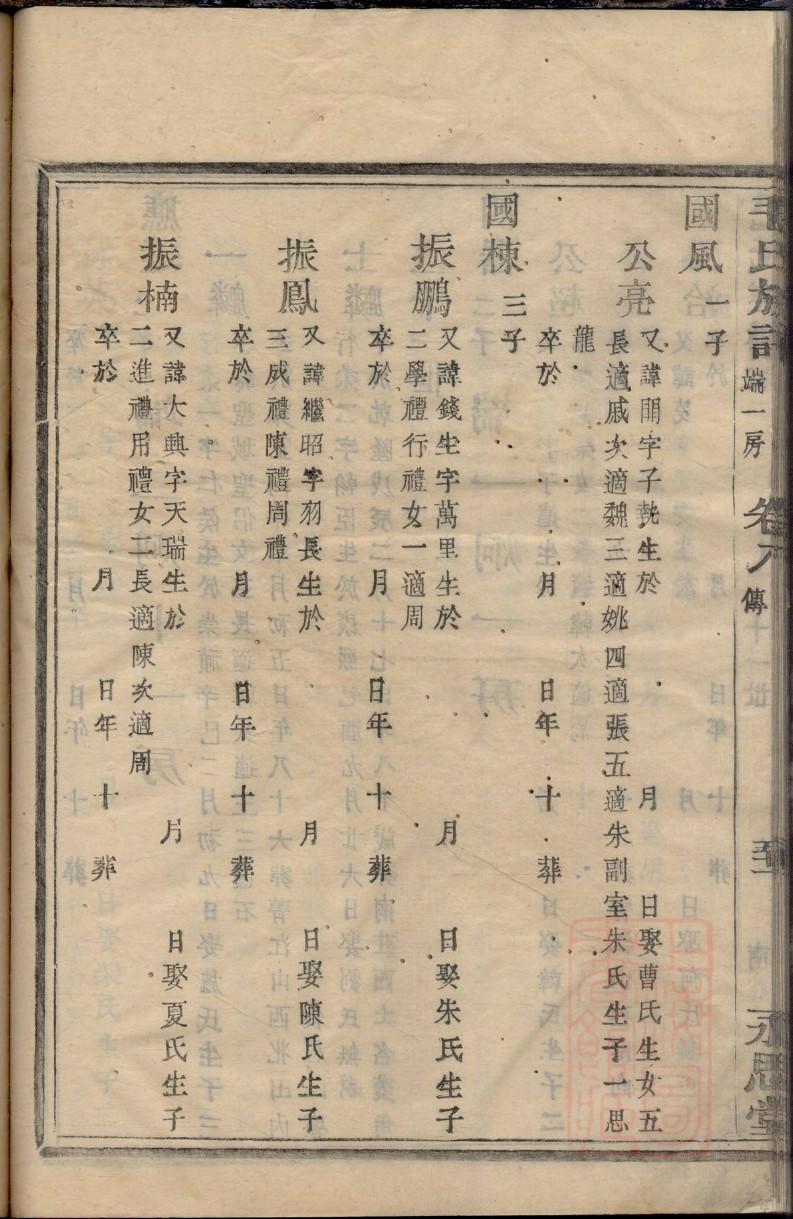 毛氏族譜 端一房 卷八 傳 永思堂
國風 一子
公亮
又諱開字子執生於 月 日娶曹氏生女五
長適戚次適魏三適姚四適張五適朱副室朱氏生子一思
龍
卒於 月 日年 十 葬
國棟 三子
振鵬
又諱錢生字萬里生於 月 日娶朱氏生子
二學禮行禮女一適周
卒於 月 日年 十 葬
振鳳
又諱繼昭字羽長生於 月 日娶陳氏生子
三威禮陳禮周禮
卒於 月 日年 十 葬
振楠
又諱大興字天瑞生於 月 日娶夏氏生子
二進禮用禮女二長適陳次適周
卒於 月 日年 十 葬